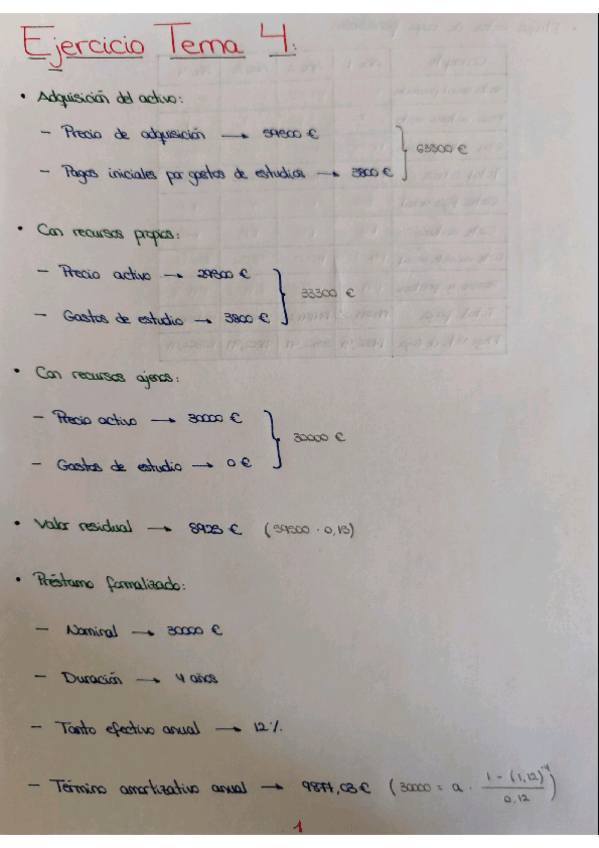 Ejercicio Tema 4:
• Adquisición del activo:
– Precio de adquisición → 59500 €
– Pagos iniciales por gastos de estudios → 3800 €
63300 €
• Con recursos propios:
– Precio activo → 29500 €
– Gastos de estudio → 3800 €
33300 €
• Con recursos ajenos:
– Precio activo → 30000 €
– Gastos de estudio → 0 €
30000 €
• Valor residual → 8925 € (59500 · 0,15)
• Préstamo formalizado:
– Nominal → 30000 €
– Duración → 4 años
– Tanto efectivo anual → 12%.
– Término amortizativo anual → 9877,03 € (30000 = a · 1 - (1,12)^-4 / 0,12)
1